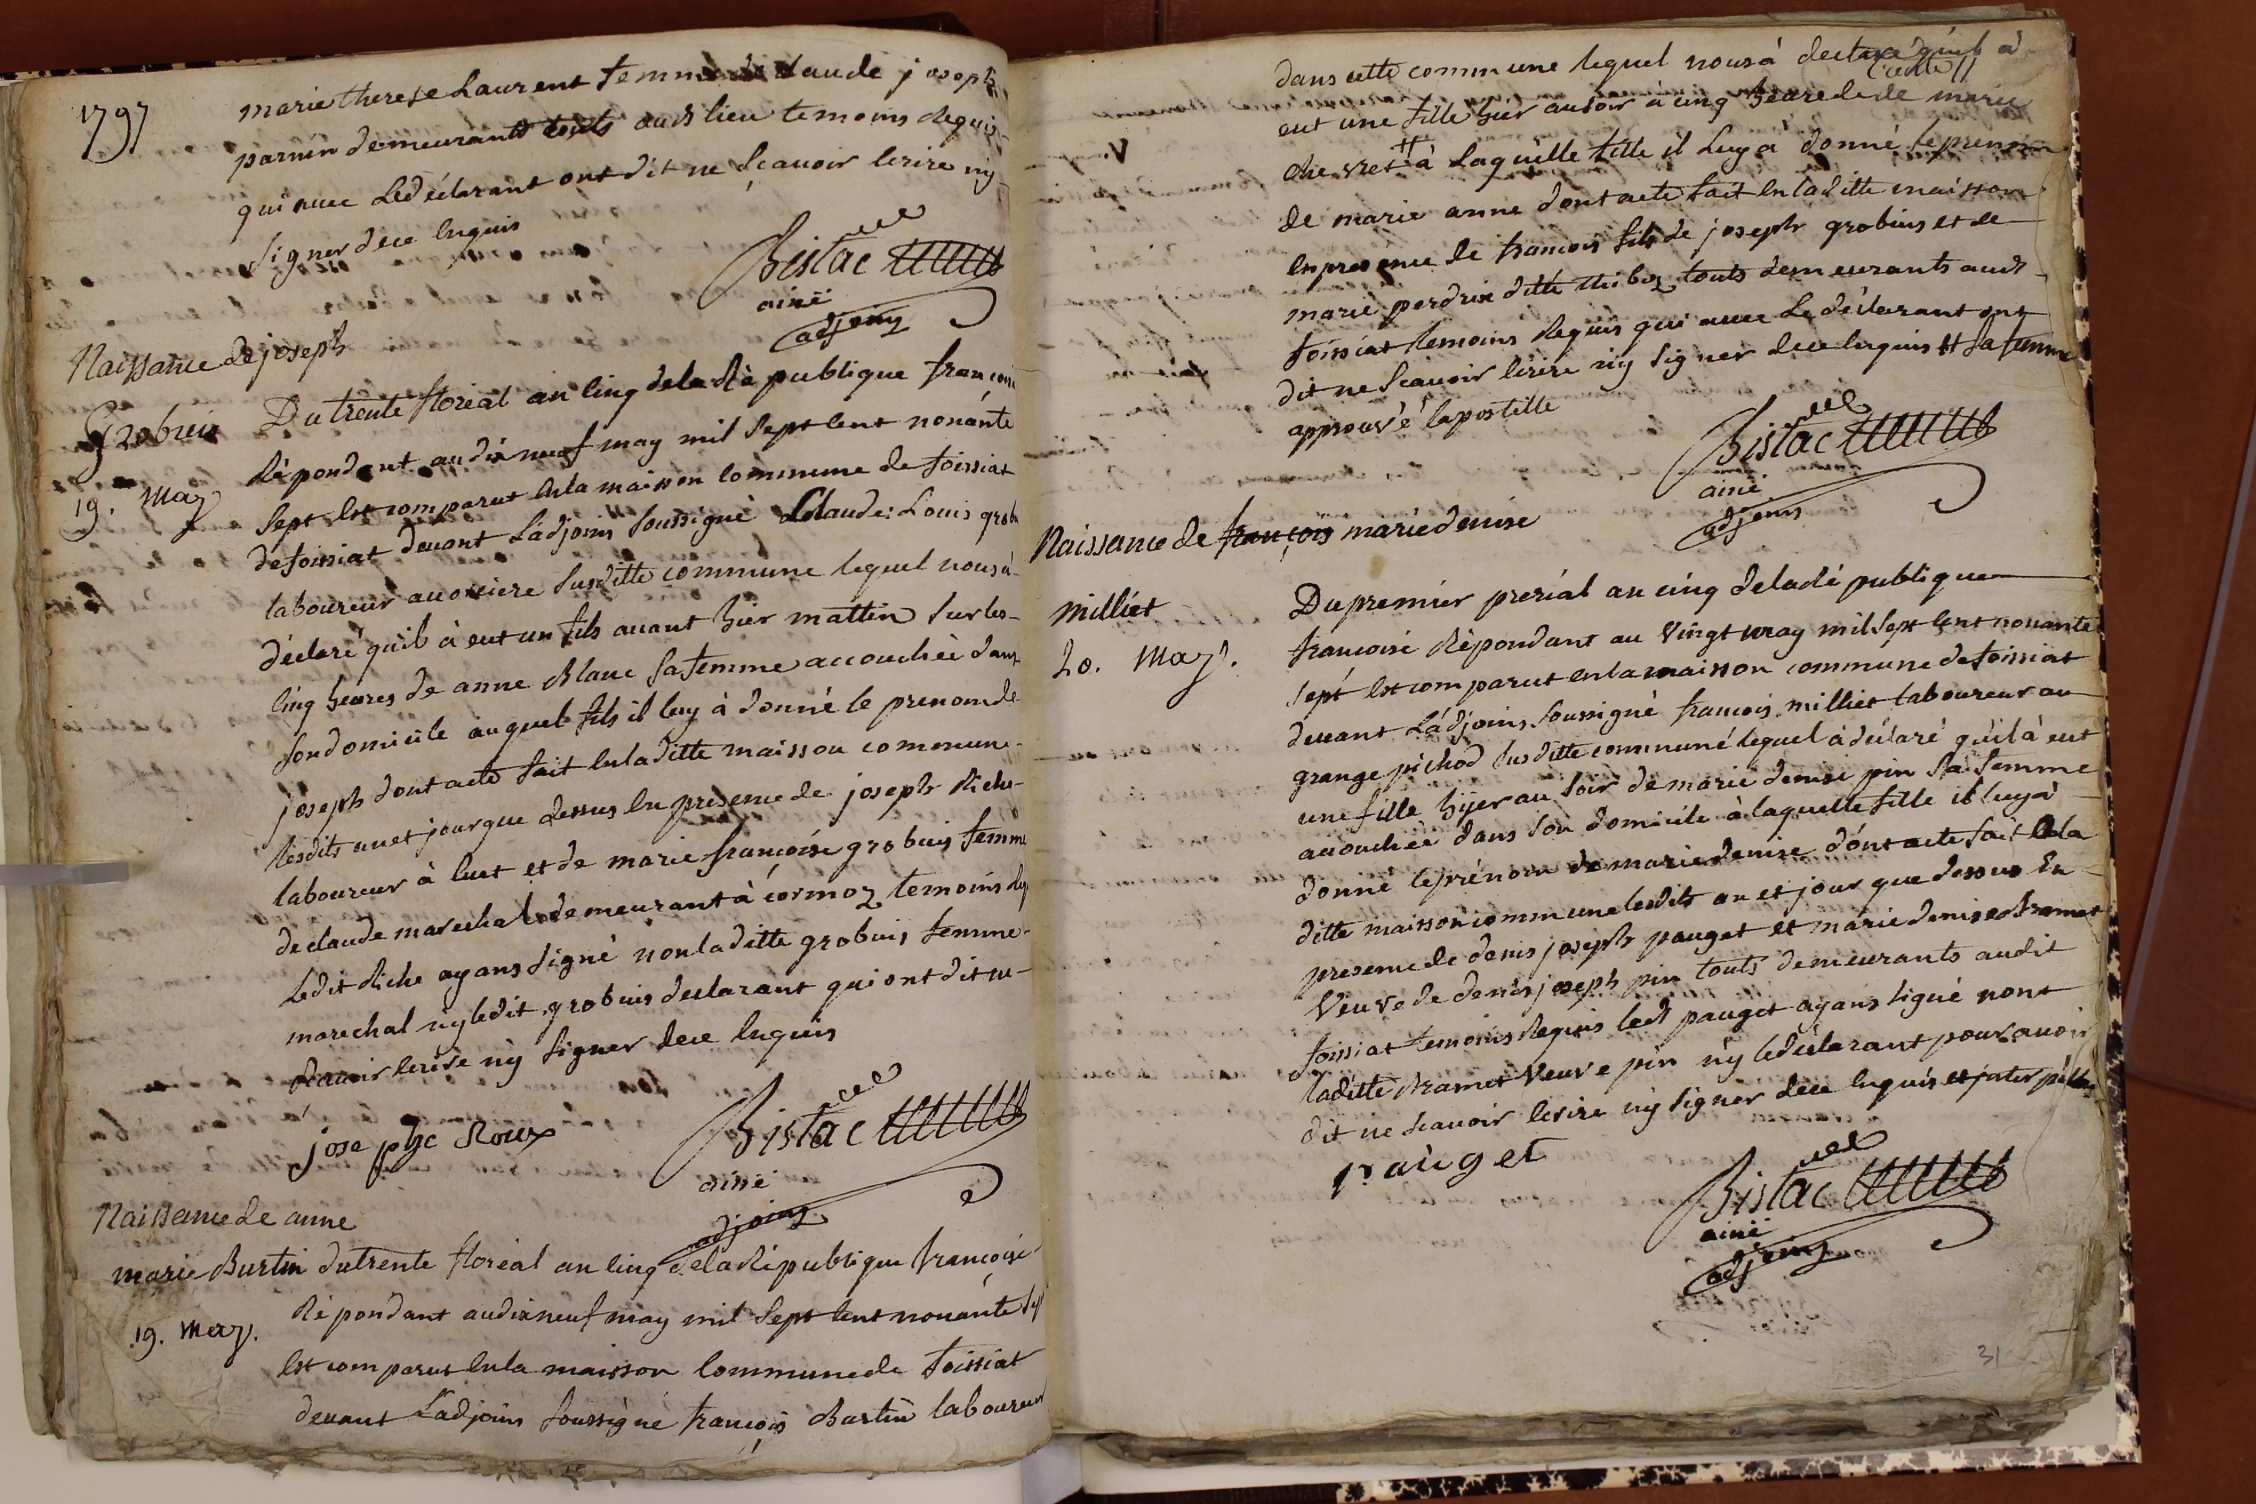 1797
marie therese Laurent femme de Claude joseph
parnin demeurants touts audt lieu temoins Requis
qui avec Le déclarant ont dit ne Sçavoir Ecrire ny
Signer de ce Enquis
Bistac
ainé
adjoint
Naissance de joseph
Grobuis
19. May
Du trente floréal an Cinq de la Rèpublique françoise
Rèpondant au dix neuf may mil Sept Cent nonante
Sept Est comparut En la maison Commune de foissiat
de foissiat devant L'adjoint Soussigné Claude Louis grob
laboureur a susditte commune lequel nous à
déclaré qu'il à eut un fils avant hier mattin Sur les
Cinq heures de anne Blanc Sa femme accouchée dans
Son domicile auquel fils il luy à donné le prenom de
joseph dont acte fait En laditte maisson commune
lesdits an et jour que dessus En presence de joseph Riche
laboureur à Cuet et de marie françoise grobuis femme
de claude marechal demeurant à Cormoz temoins
Ledit Riche ayans Signé non laditte grobuis femme
marechal ny ledit grobuis declarant qui ont dit ne
Scavoir Ecrire ny Signer de ce Enquis
josephe Roux
Bistac
ainé
adjoint
Naissance de anne
marie Burtin
19. May.
du trente floréal an Cinq de la Rèpublique françoise
Rèpondant au dix neuf may mil Sept Cent nonante Sept
Est comparut En la maisson Commune de foissiat
devant L'adjoint Soussigné françois Burtin laboureur
dans cette commune lequel nous à declaré qu'il à
eut une fille hier au soir à cinq heure de de marie
chevret # à Laquelle fille il Luy a donné le prenom
de marie anne dont acte fait En laditte maisson
En presence de francois fils de joseph grobuis et de
marie perdrix ditte touts demeurants audt
foissiat temoins Requis qui avec Le déclarant ont
dit ne Scavoir Ecrire ny Signer de ce Enquis # Sa femme
approuvé lapostille
Bistac
ainé
adjoint
Naissance de françois marie denise
Milliet
20. May.
Du premier prerial an cinq de la Rèpublique
francoise Rèpondant au Vingt may mil Sept Cent nonante
Sept Est comparut en la maisson commune de foissiat
devant L'adjoint Soussigné francois milliet laboureur au
grange pichod Susditte commune lequel à déclaré qu'il à eut
une fille hyer au Soir de marie denise pin Sa femme
accouchée dans Son domicile à laquelle fille il luy à
donné le prénom de marie denise dont acte fait En la
ditte maisson commune lesdits an et jour que dessus En
presence de denis joseph pauget et marie denise
Veuve de denis joseph pin touts demeurants audit
foissiat temoins Requis ledt pauget ayans Signé non
laditte Veuve pin ny le déclarant pour avoir
dit ne Scavoir Ecrire ny Signer de ce Enquis et
pauget
Bistac
ainé
adjoint
31